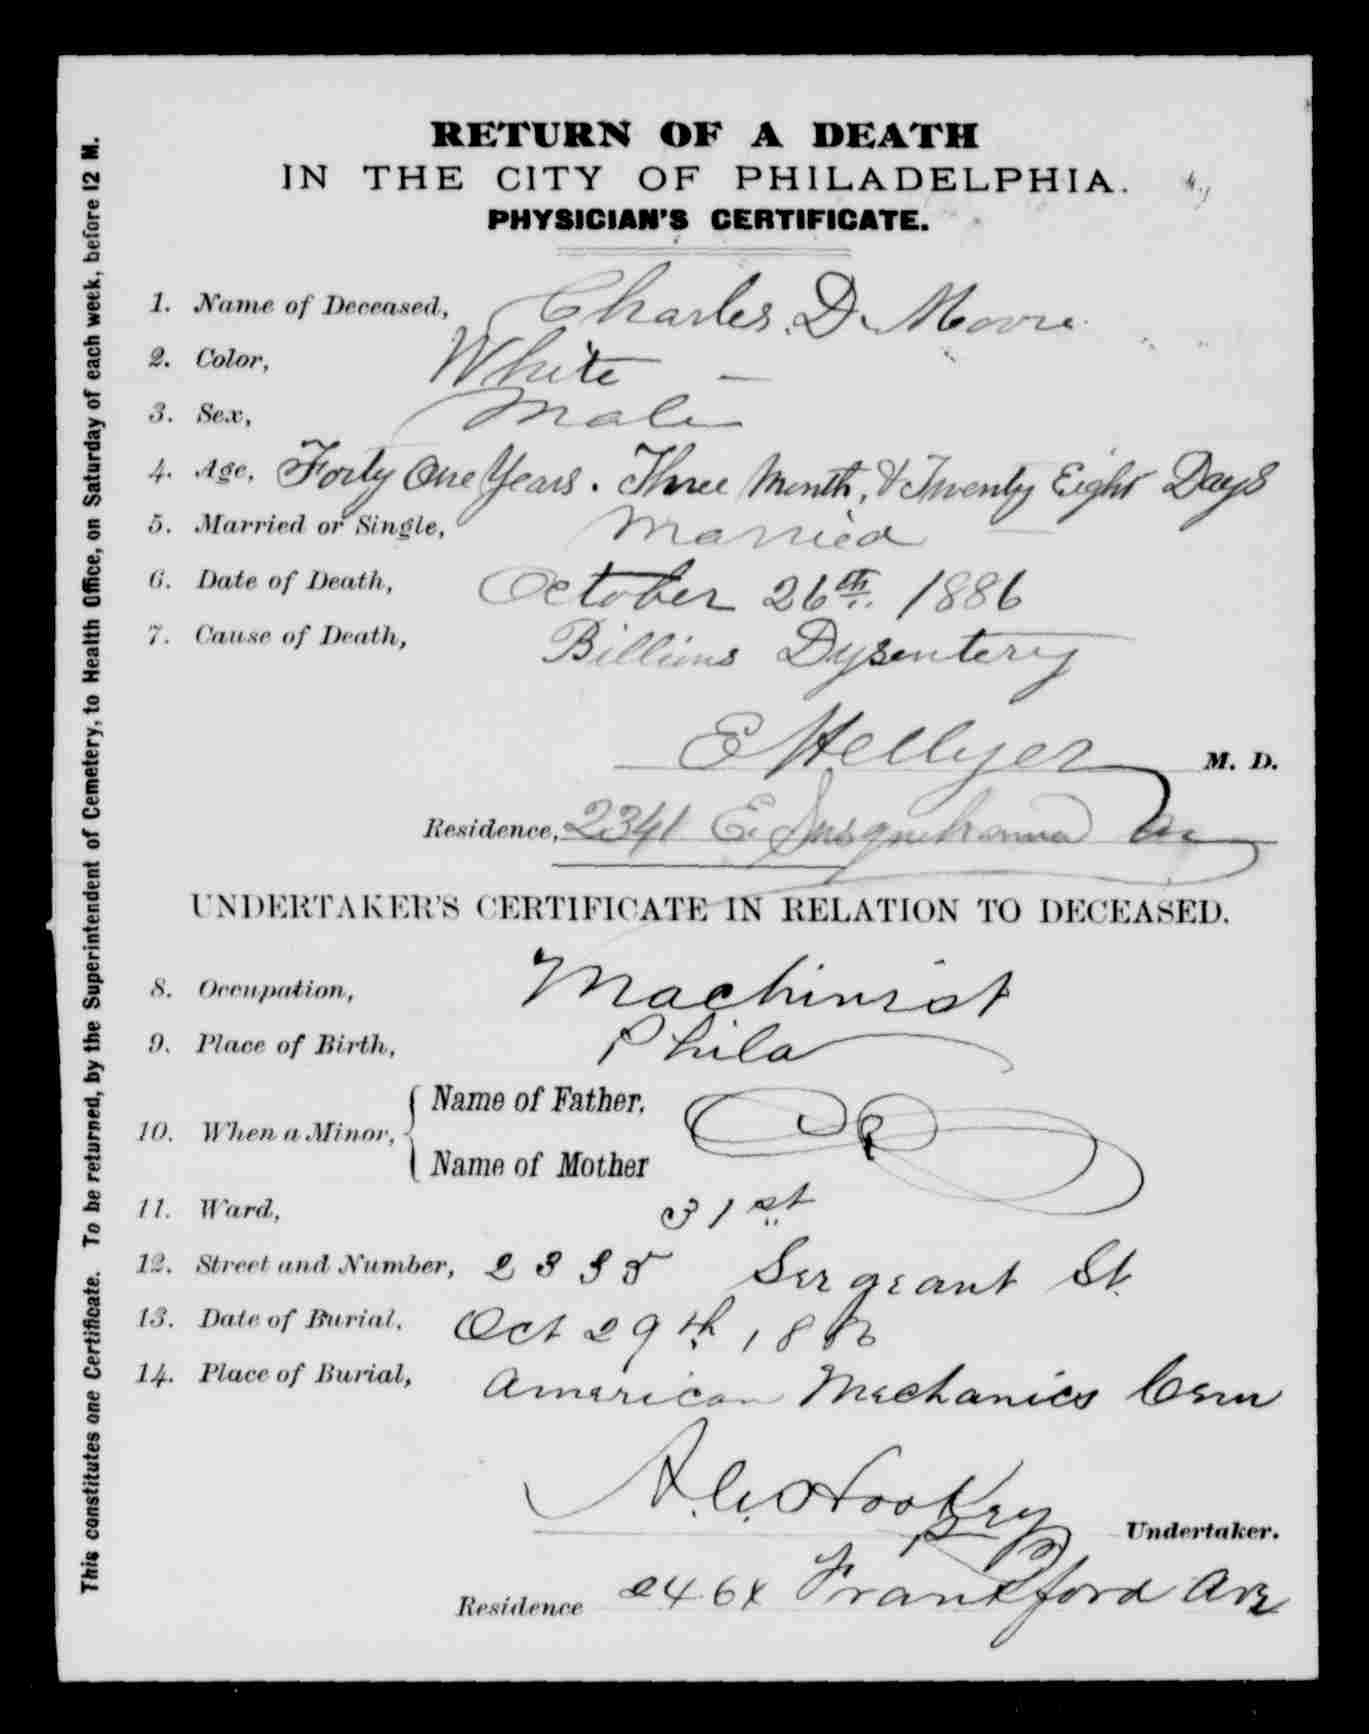 RETURN OF A DEATH
IN THE CITY OF PHILADELPHIA.
PHYSICIAN'S CERTIFICATE.
1. Name of Deceased, Charles D. Moore
2. Color, White —
3. Sex, Male
4. Age, Forty One Years. Three Month, & Twenty Eight Days
5. Married or Single, Married —
6. Date of Death, October 26th. 1886
7. Cause of Death, Billious Dysentery
E Hellyer M. D.
Residence, 2341 E. Susquehanna Av
UNDERTAKER'S CERTIFICATE IN RELATION TO DECEASED.
8. Occupation, Machinist
9. Place of Birth, Phila
10. When a Minor, { Name of Father,
Name of Mother
11. Ward, 31st
12. Street and Number, 2335 Sergeant St.
13. Date of Burial, Oct 29th, 1886
14. Place of Burial, American Mechanics Cem
A. C. Hookey Undertaker.
Residence 2464 Frankford Ave
This constitutes one Certificate. To be returned, by the Superintendent of Cemetery, to Health Office, on Saturday of each week, before 12 M.